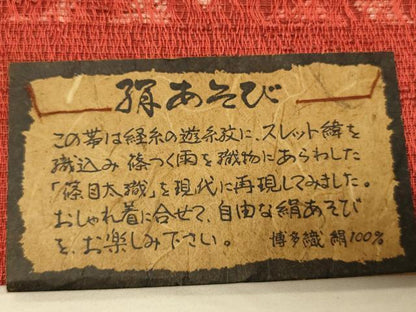 絹あそび
この帯は経糸の遊糸紋に、スレット緯を
織込み篠つく雨を織物にあらわした
「篠目太織」を現代に再現してみました。
おしゃれ着に合せて、自由な絹あそび
を、お楽しみ下さい。 博多織 絹100%